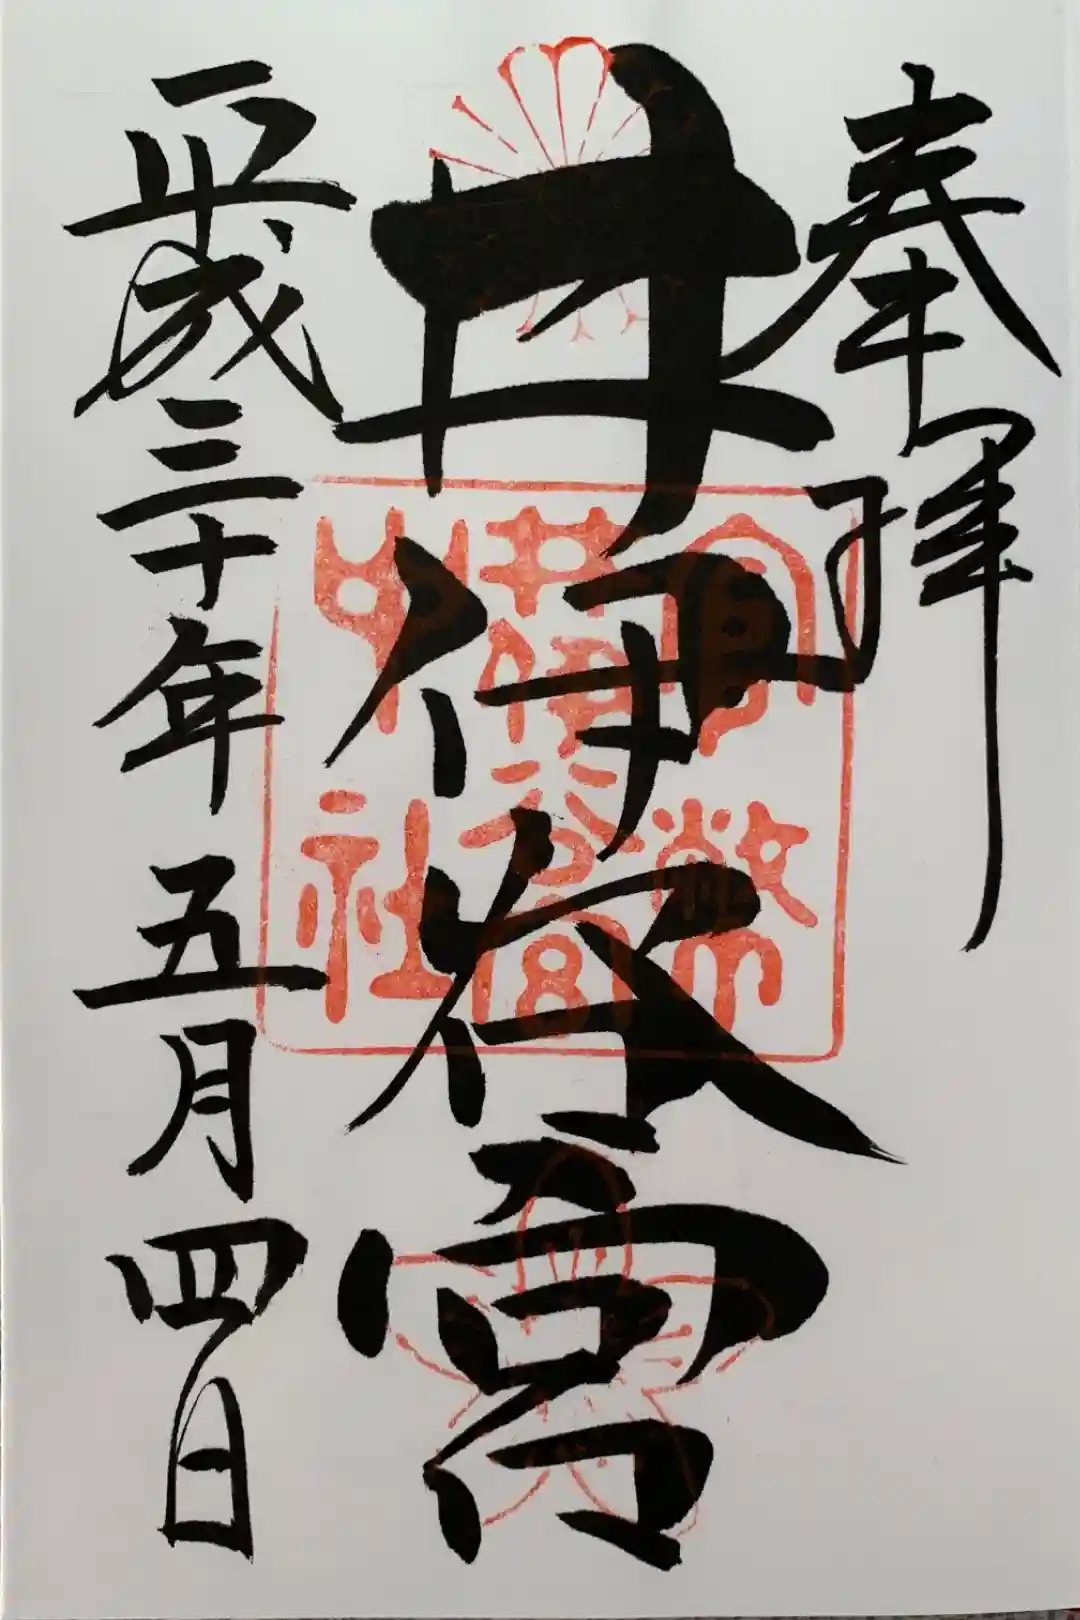 奉拝
井伊谷宮
官幣
井伊谷宮
中社
平成三十年五月四日